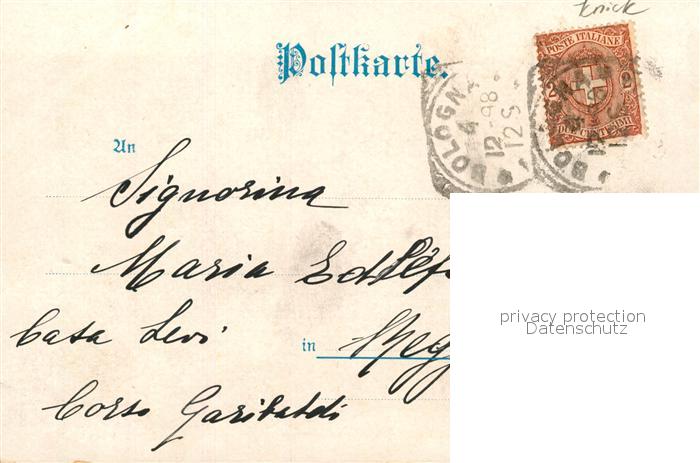 knick
Postkarte.
POSTE ITALIANE
2 2
DUE CENTESIMI
BOLOGNA
4
12-98
12 S
BO
An
Signorina
Maria
Casa Levi
in
Corso Garibaldi
privacy protection
Datenschutz